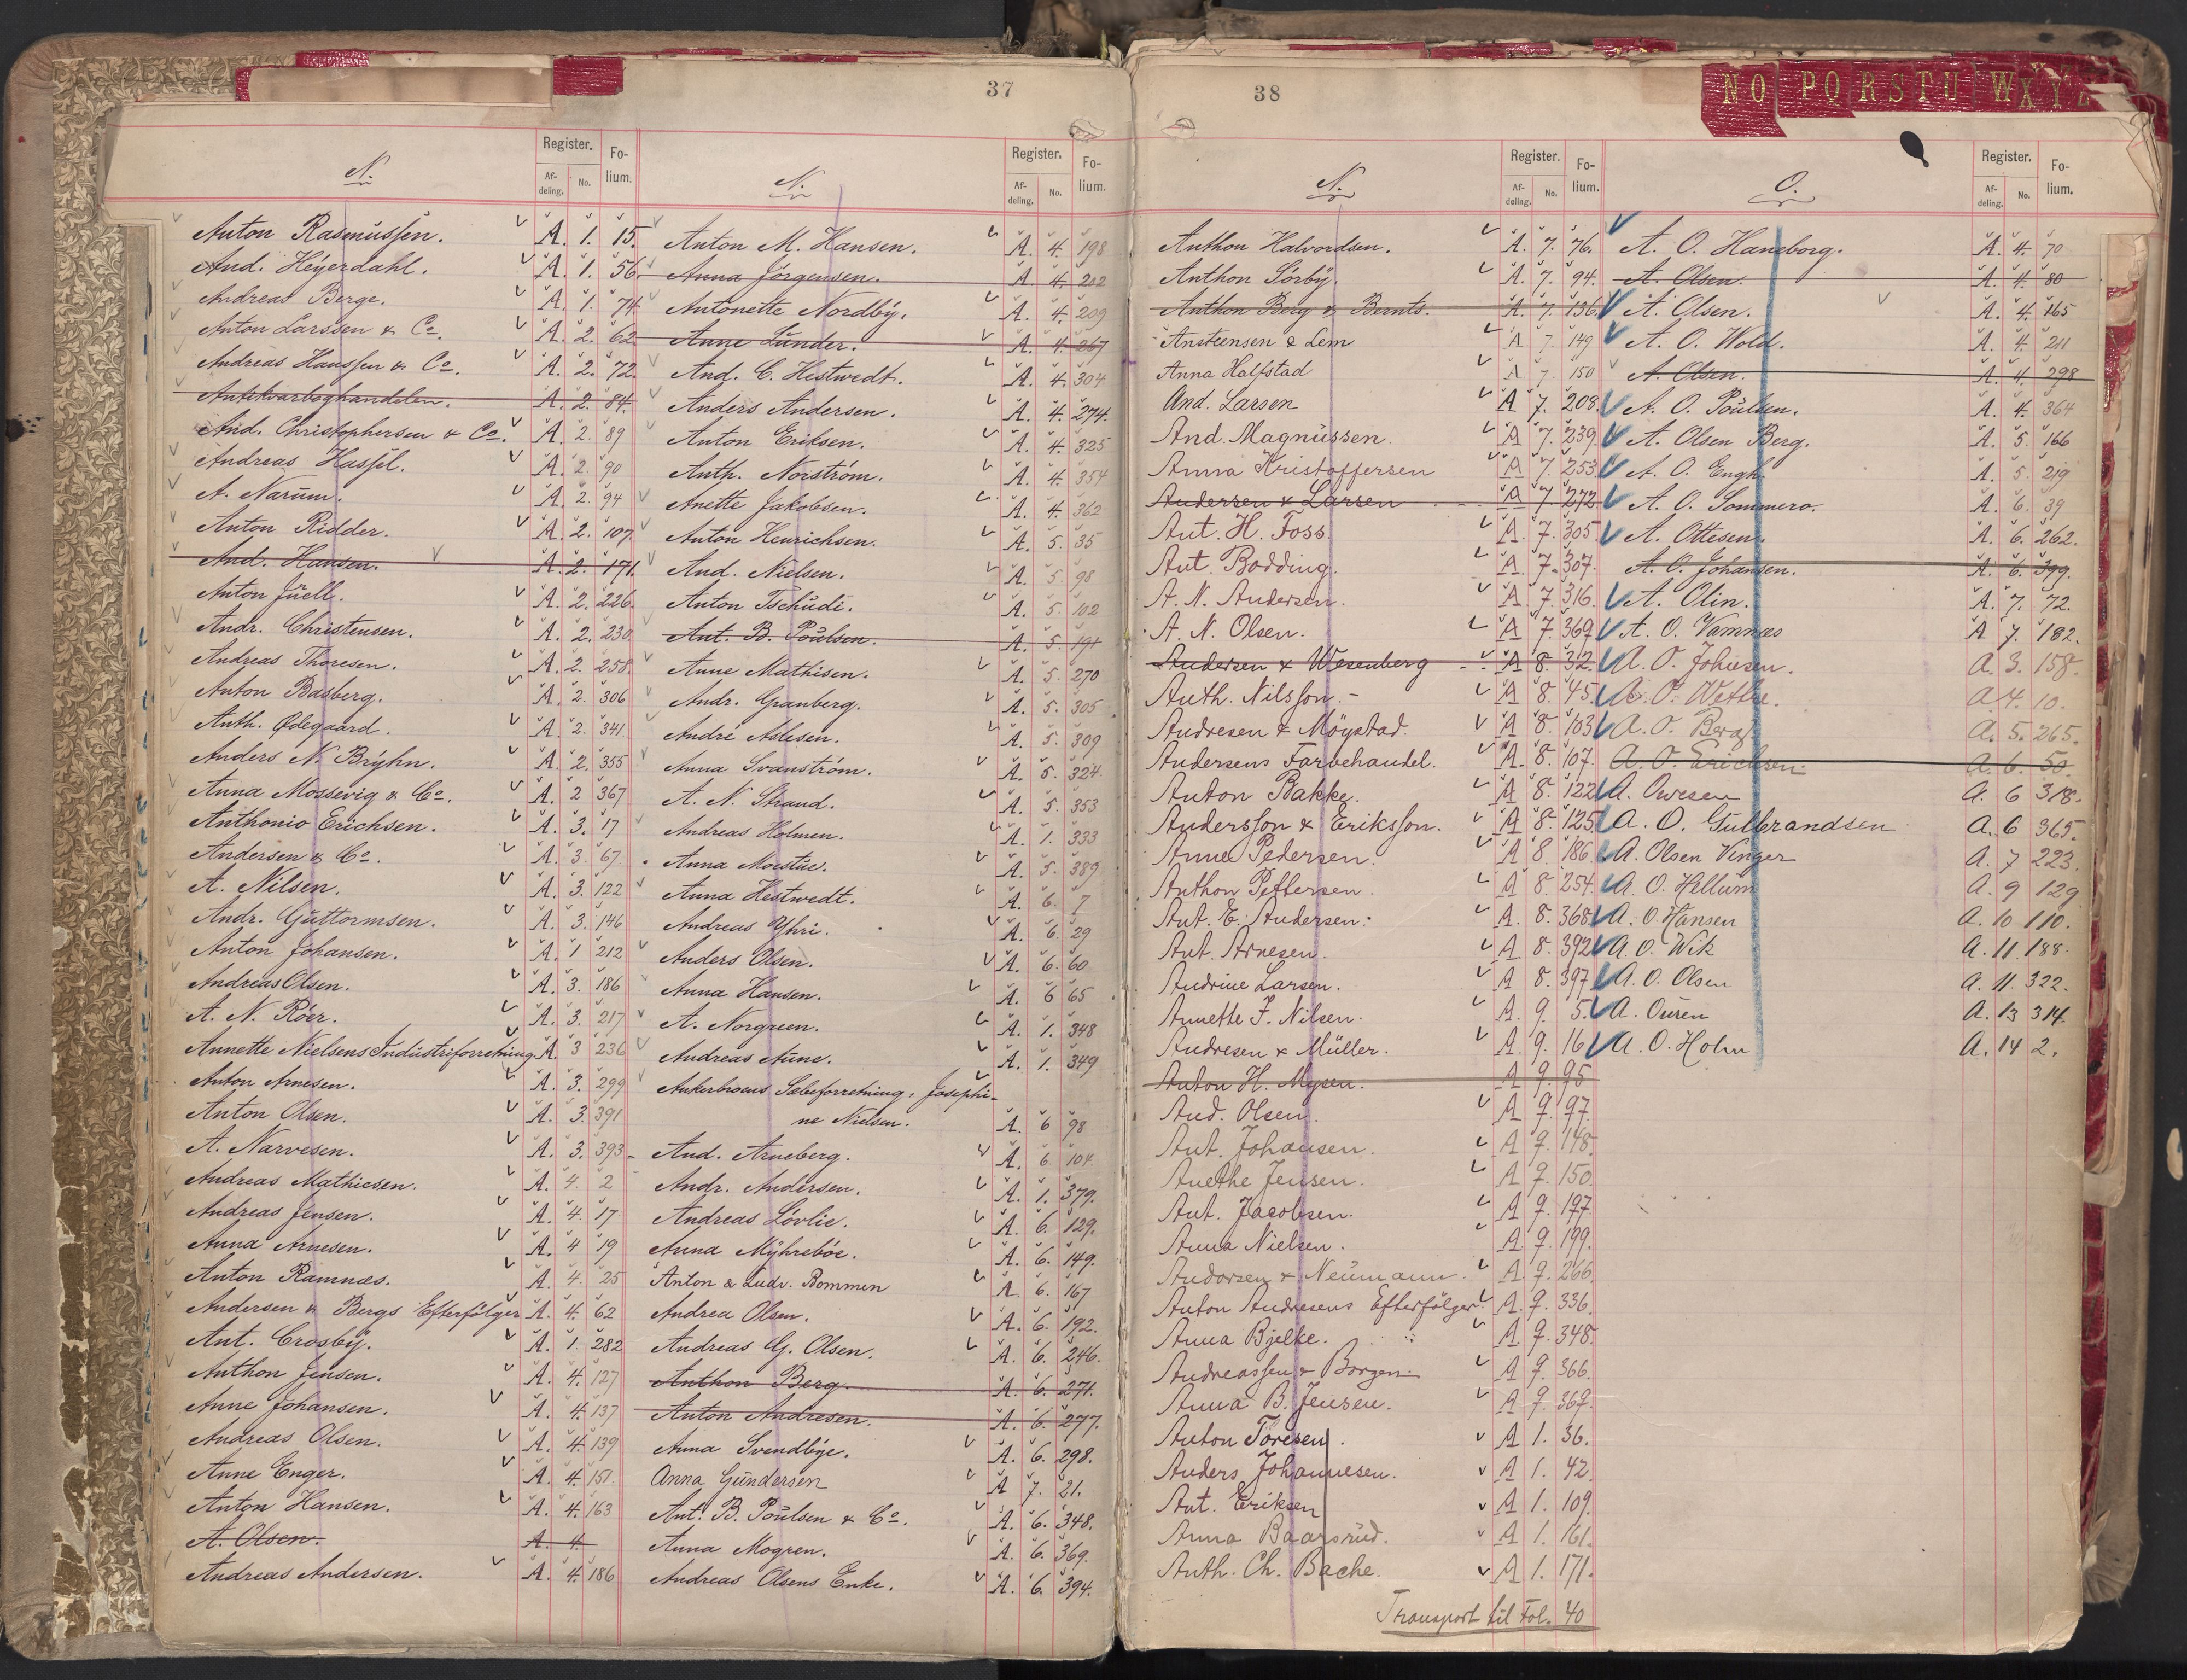 37
N.
Register.
Fo-
lium.
Af-
deling.
No.
Anton Rasmussen. A. 1. 15.
And. Heyerdahl. A. 1. 56.
Andreas Berge. A. 1. 74.
Anton Larssen & Co. A. 2. 62.
Andreas Hanssen & Co. A. 2. 72.
Antikvarboghandelen. A. 2. 84.
And. Christophersen & Co. A. 2. 89
Andreas Hasfil. A. 2. 90
A. Narum. A. 2. 94
Anton Ridder. A. 2. 107.
And. Hansen. A. 2. 171.
Anton Juell. A. 2. 226.
Andr. Christensen. A. 2. 230
Andreas Thoresen. A. 2. 258.
Anton Basberg. A. 2. 306
Anth. Ødegaard. A. 2. 341.
Anders N. Bryhn. A. 2. 355
Anna Mossevig & Co. A. 2 367
Anthonio Erichsen. A. 3. 17
Andersen & Co. A. 3. 67
A. Nilsen. A. 3. 122
Andr. Guttormsen. A. 3. 146
Anton Johansen. A. 1 212
Andreas Olsen. A. 3. 186
A. N. Röer. A. 3. 217
Annette Nielsens Industriforretning A. 3 236
Anton Arnesen. A. 3. 299
Anton Olsen. A. 3. 391
A. Narvesen. A. 3. 393
Andreas Mathiesen. A. 4. 2
Andreas Jensen. A. 4. 17
Anna Arnesen. A. 4 19
Anton Ramnæs. A. 4. 25
Andersen & Bergs Efterfölger A. 4. 62
Ant. Crosby. A. 1. 282
Anthon Jensen. A. 4. 127
Anne Johansen. A. 4. 137
Andreas Olsen. A. 4. 139
Anne Enger. A. 4. 151.
Anton Hansen. A. 4. 163
A. Olsen. A. 4.
Andreas Andersen. A. 4. 186
N.
Register.
Fo-
lium.
Af-
deling.
No.
Anton M. Hansen. A. 4. 198
Anna Jörgensen. A. 4. 202
Antonette Nordby. A. 4. 209
Anne Lunder. A. 4. 267
And. C. Hestwedt. A. 4. 304
Anders Andersen. A. 4. 274.
Anton Eriksen. A. 4. 325
Anth. Norström. A. 4. 354
Anette Jakobsen. A. 4. 362
Anton Henrichsen. A. 5. 35
And. Nielsen. A. 5. 98
Anton Tschudi. A. 5. 102
Ant. B. Poulsen. A. 5. 191
Anne Mathisen. A. 5. 270
Andr. Granberg. A. 5. 305
André Aslesen. A. 5. 309
Anna Svanström. A. 5. 324.
A. N. Strand. A. 5. 353
Andreas Holmen. A. 1. 333
Anna Moestue. A. 5. 389
Anna Hestwedt. A. 6. 7
Andreas Yhri. A. 6. 29
Anders Olsen. A. 6. 60
Anna Hansen. A. 6 65
A. Norgreen. A. 1. 348
Andreas Aune. A. 1. 349
Ankerbroens Sæbeforretning, Josephi-
ne Nielsen. A. 6 98
And. Arneberg. A. 6 104
Andr. Andersen. A. 1. 379.
Andreas Lövlie. A. 6. 129.
Anna Myhreböe. A. 6. 149.
Anton & Ludv. Bommen A. 6. 167
Andrea Olsen. A. 6. 192.
Andreas G. Olsen. A. 6. 246.
Anthon Berg. A. 6. 271.
Anton Andresen. A. 6. 277.
Anna Svendbye. A. 6. 298.
Anna Gundersen A 7. 21.
Ant. B. Poulsen & Co. A. 6. 348.
Anna Mogren. A. 6. 369.
Andreas Olsens Enke. A. 6. 394.
38
N.
Register.
Fo-
lium.
Af-
deling.
No.
Anthon Halvordsen. A. 7. 76.
Anthon Sörby. A. 7. 94.
Anthon Berg & Bernts. A. 7. 136.
Ansteensen & Lem A 7. 149
Anna Halfstad A 7. 150
And. Larsen A 7. 208.
And. Magnussen A 7. 239
Anna Kristoffersen A 7. 253
Andersen & Larsen A 7. 272
Ant. H. Foss. A 7. 305.
Ant. Bodding. A 7. 307.
A. N. Andersen A 7. 316.
A. N. Olsen. A 7. 369
Andersen & Wesenberg A 8. 32.
Anth. Nilsson. A 8. 45.
Andresen & Möystad. A 8. 103
Andersens Farvehandel. A. 8. 107.
Anton Bakke. A 8. 122
Andersson & Eriksson. A 8. 125.
Anne Pedersen. A 8. 186.
Anthon Pettersen. A 8. 254.
Ant. E. Andersen. A. 8. 368.
Ant. Arnesen. A 8. 392
Andrine Larsen. A 8. 397
Annette F. Nilsen. A. 9. 5.
Andresen & Müller. A 9. 16.
Anton H. Mysen. A 9. 95
And. Olsen. A 9. 97
Ant. Johansen. A 9. 148.
Anethe Jensen. A 9. 150
Ant. Jacobsen. A 9. 197
Anna Nielsen. A 9. 199.
Andorsen & Neumann. A. 9. 266.
Anton Andresens Efterfølger. A. 9. 336.
Anna Bjelke. A. 9. 348.
Andreassen & Borgen. A 9. 366.
Anna B. Jensen. A 9. 367.
Anton Toresen. A 1. 36.
Anders Johannesen. A 1. 42.
Ant. Eriksen A 1. 109.
Anna Baarsrud. A 1. 161.
Anth. Ch. Bache. A 1. 171.
Transport til Fol. 40
NO PQ RS TU WX YZ
O.
Register.
Fo-
lium.
Af-
deling.
No.
A. O. Haneborg. A. 4. 70
A. Olsen. A. 4. 80
A. Olsen. A. 4. 165
A. O. Wold. A. 4. 211
A. Olsen. A. 4. 298
A. O. Poulsen. A. 4. 364
A. Olsen Berg. A. 5. 166
A. O. Engh. A. 5. 219
A. O. Sommero. A. 6. 39
A. Ottesen. A. 6. 262.
A. O. Johansen. A. 6. 399.
A. Olin. A. 7. 72.
A. O. Vamnæs A 7. 182.
A. O. Johnsen. A. 3. 158.
A. O. Wethe. A 4. 10.
A. O. Berg. A. 5. 265.
A. O. Erichsen. A. 6. 50.
A. Owesen A. 6 318.
A. O. Gulbrandsen A. 6 365.
A. Olsen Vinger A. 7 223.
A. O. Hellum A. 9 129
A. O. Hansen A. 10 110.
A. O. Wik A. 11. 188.
A. O. Olsen A. 11. 322.
A. Ouren A. 13 314.
A. O. Holm A. 14 2.